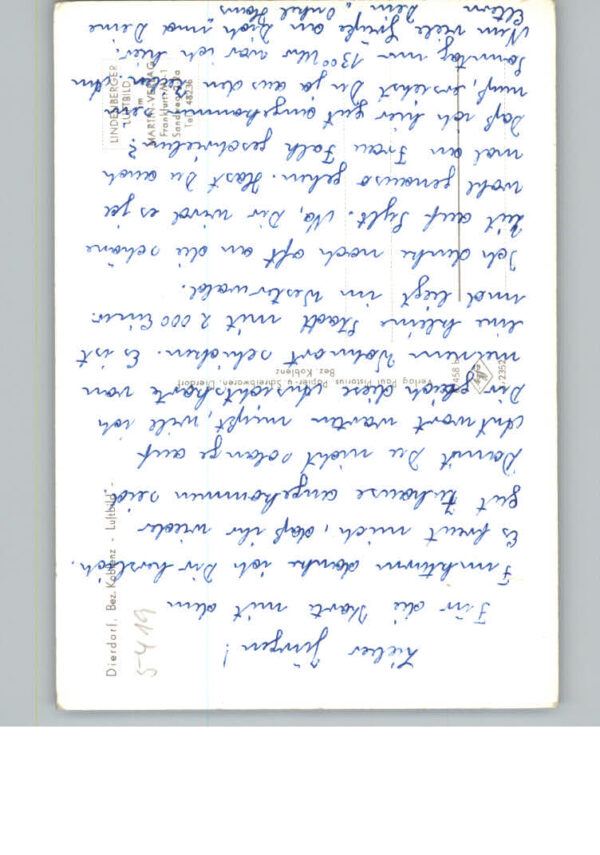 Lieber Jürgen!
Für die Karte mit dem
Funkturm danke ich Dir herzlich.
Es freut mich, daß ihr wieder
gut zuhause angekommen seid.
Damit Du nicht solange auf
Antwort warten mußt, will ich
Dir gleich diese Ansichtskarte von
meinem Wohnort schicken. Es ist
eine kleine Stadt mit 2 000 Einw.
und liegt im Westerwald.
Ich denke noch oft an die schöne
Zeit auf Sylt. Na, Dir wird es ja
wohl genauso gehen. Hast Du auch
mal an Frau Falk geschrieben?
Daß ich hier gut angekommen sein
muß, ersiehst Du ja aus den Zeilen. Am
Sonntag um 13⁰⁰ Uhr war ich hier.
Nun viele Grüße an Dich und Deine
Eltern Dein "Onkel Hans
Dierdorf, Bez. Koblenz - Luftbild -
5419
LINDENBERGER
"LUFTBILD"
im
MARTIN-VERLAG
Frankfurt/M.
Tel. 48236
Verlag Paul Pistorius Papier- u. Schreibwaren, Dierdorf
Bez. Koblenz